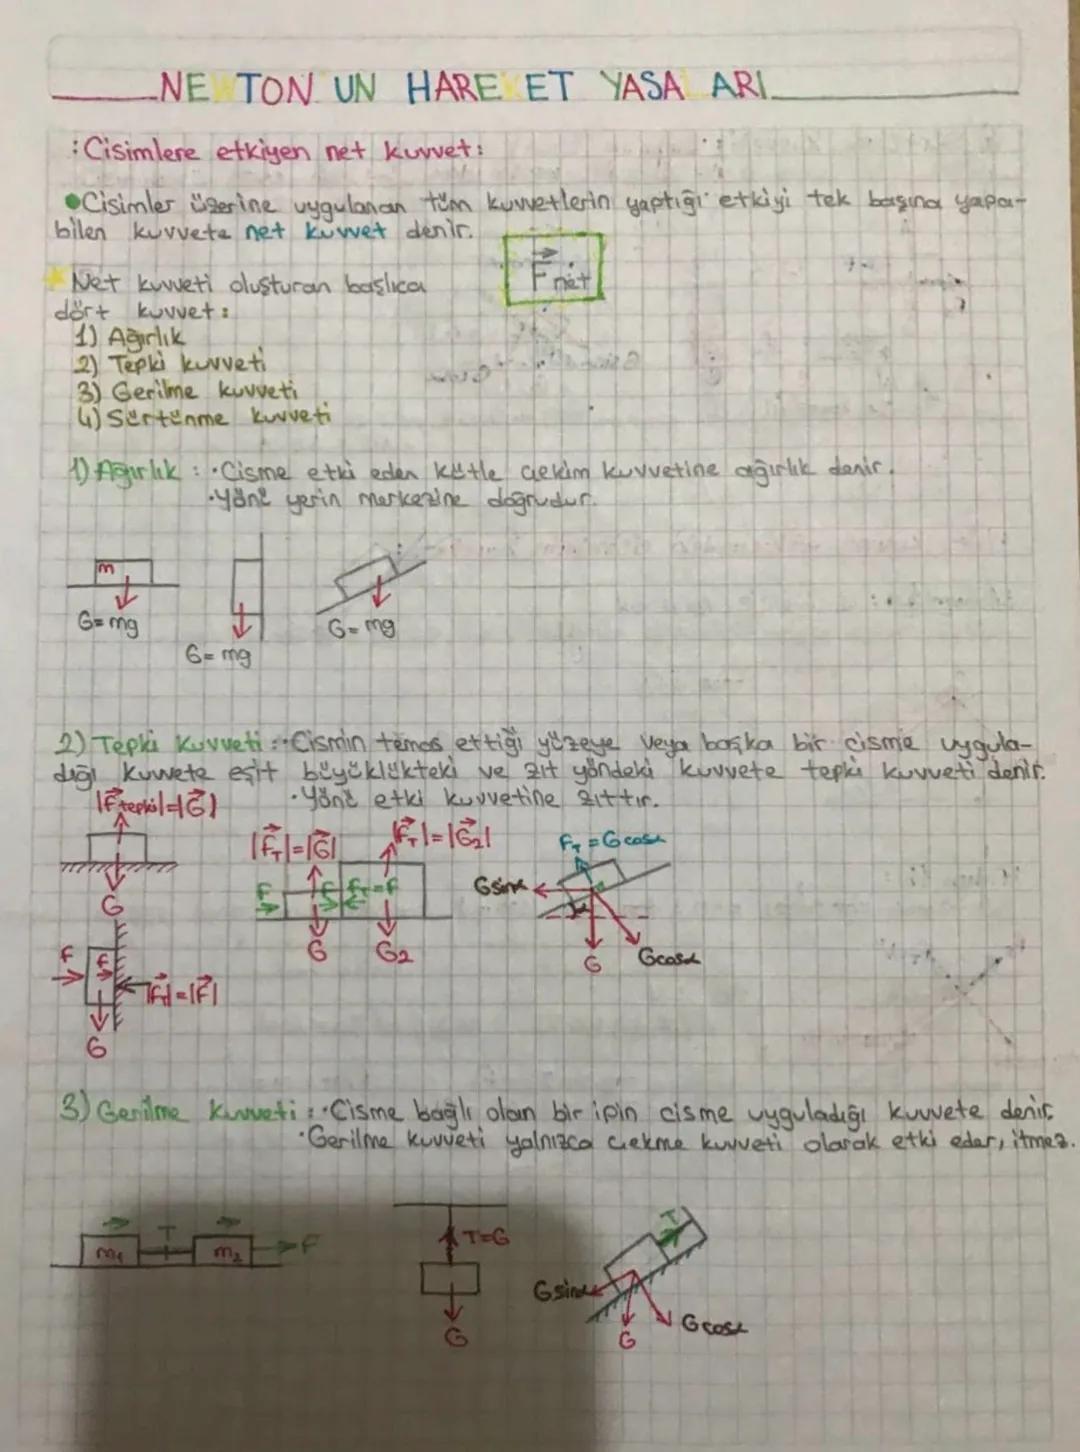 NEWTON UN HAREKET YASALARI
: Cisimlere etkiyen net kuvvet:
• Cisimler üzerine uygulanan tüm kuvvetlerin yaptığı etkiyi tek başına yapa-
bilen kuvvete net kuvvet denir.
F net
Net kuvveti oluşturan başlıca
dört kuvvet:
1) Ağırlık
2) Tepki kuvveti
3) Gerilme kuvveti
4) Sürtünme kuvveti
1) Ağırlık : • Cisme etki eden kütle çekim kuvvetine ağırlık denir.
• Yönü yerin merkezine doğrudur.
m
G=mg
G=mg
G=mg
2) Tepki Kuvveti : • Cismin temas ettiği yüzeye veya başka bir cisme uygula-
dığı kuvvete eşit büyüklükteki ve zıt yöndeki kuvvete tepki kuvveti denir.
• Yönü etki kuvvetine zıttır.
|F tepki|=|G|
G
|F_T|=|G|
|F_T|=|G_2|
F F F_T=F
G G_2
F_T=Gcosα
Gsinα
α
G Gcosα
F F
|F_T|=|F|
G
3) Gerilme Kuvveti : • Cisme bağlı olan bir ipin cisme uyguladığı kuvvete denir.
• Gerilme kuvveti yalnızca çekme kuvveti olarak etki eder, itmez.
m_1 T m_2 F
T=G
G
T
Gsinα
G Gcosα